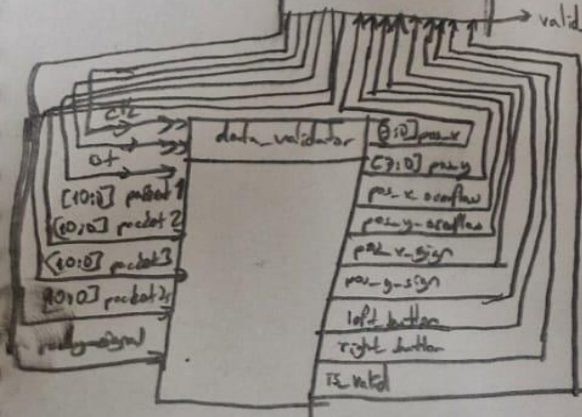 valid
clk
data_validator
[10:0] packet 1
[10:0] packet 2
[10:0] packet 3
[10:0] packet
[7:0] pos_y
pos_x_overflow
pos_y_overflow
pos_x_sign
pos_y_sign
left_button
right_button
is_valid